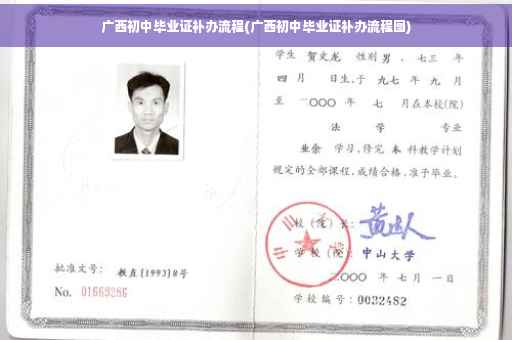 广西初中毕业证补办流程(广西初中毕业证补办流程图)
学生 贺文龙 性别 男 、七三 年
四 月 日生,于 九七 年 九 月
至 二〇〇〇 年 七 月在本校(院)
法 学 专业
业余 学习,修完 本 科教学计划
规定的全部课程,成绩合格,准予毕业。
校(院)长:
学校(院): 中山大学
二〇〇〇 年 七 月 一 日
学校编号: 0032482
批准文号: 教直[1993]8号
No. 01669286